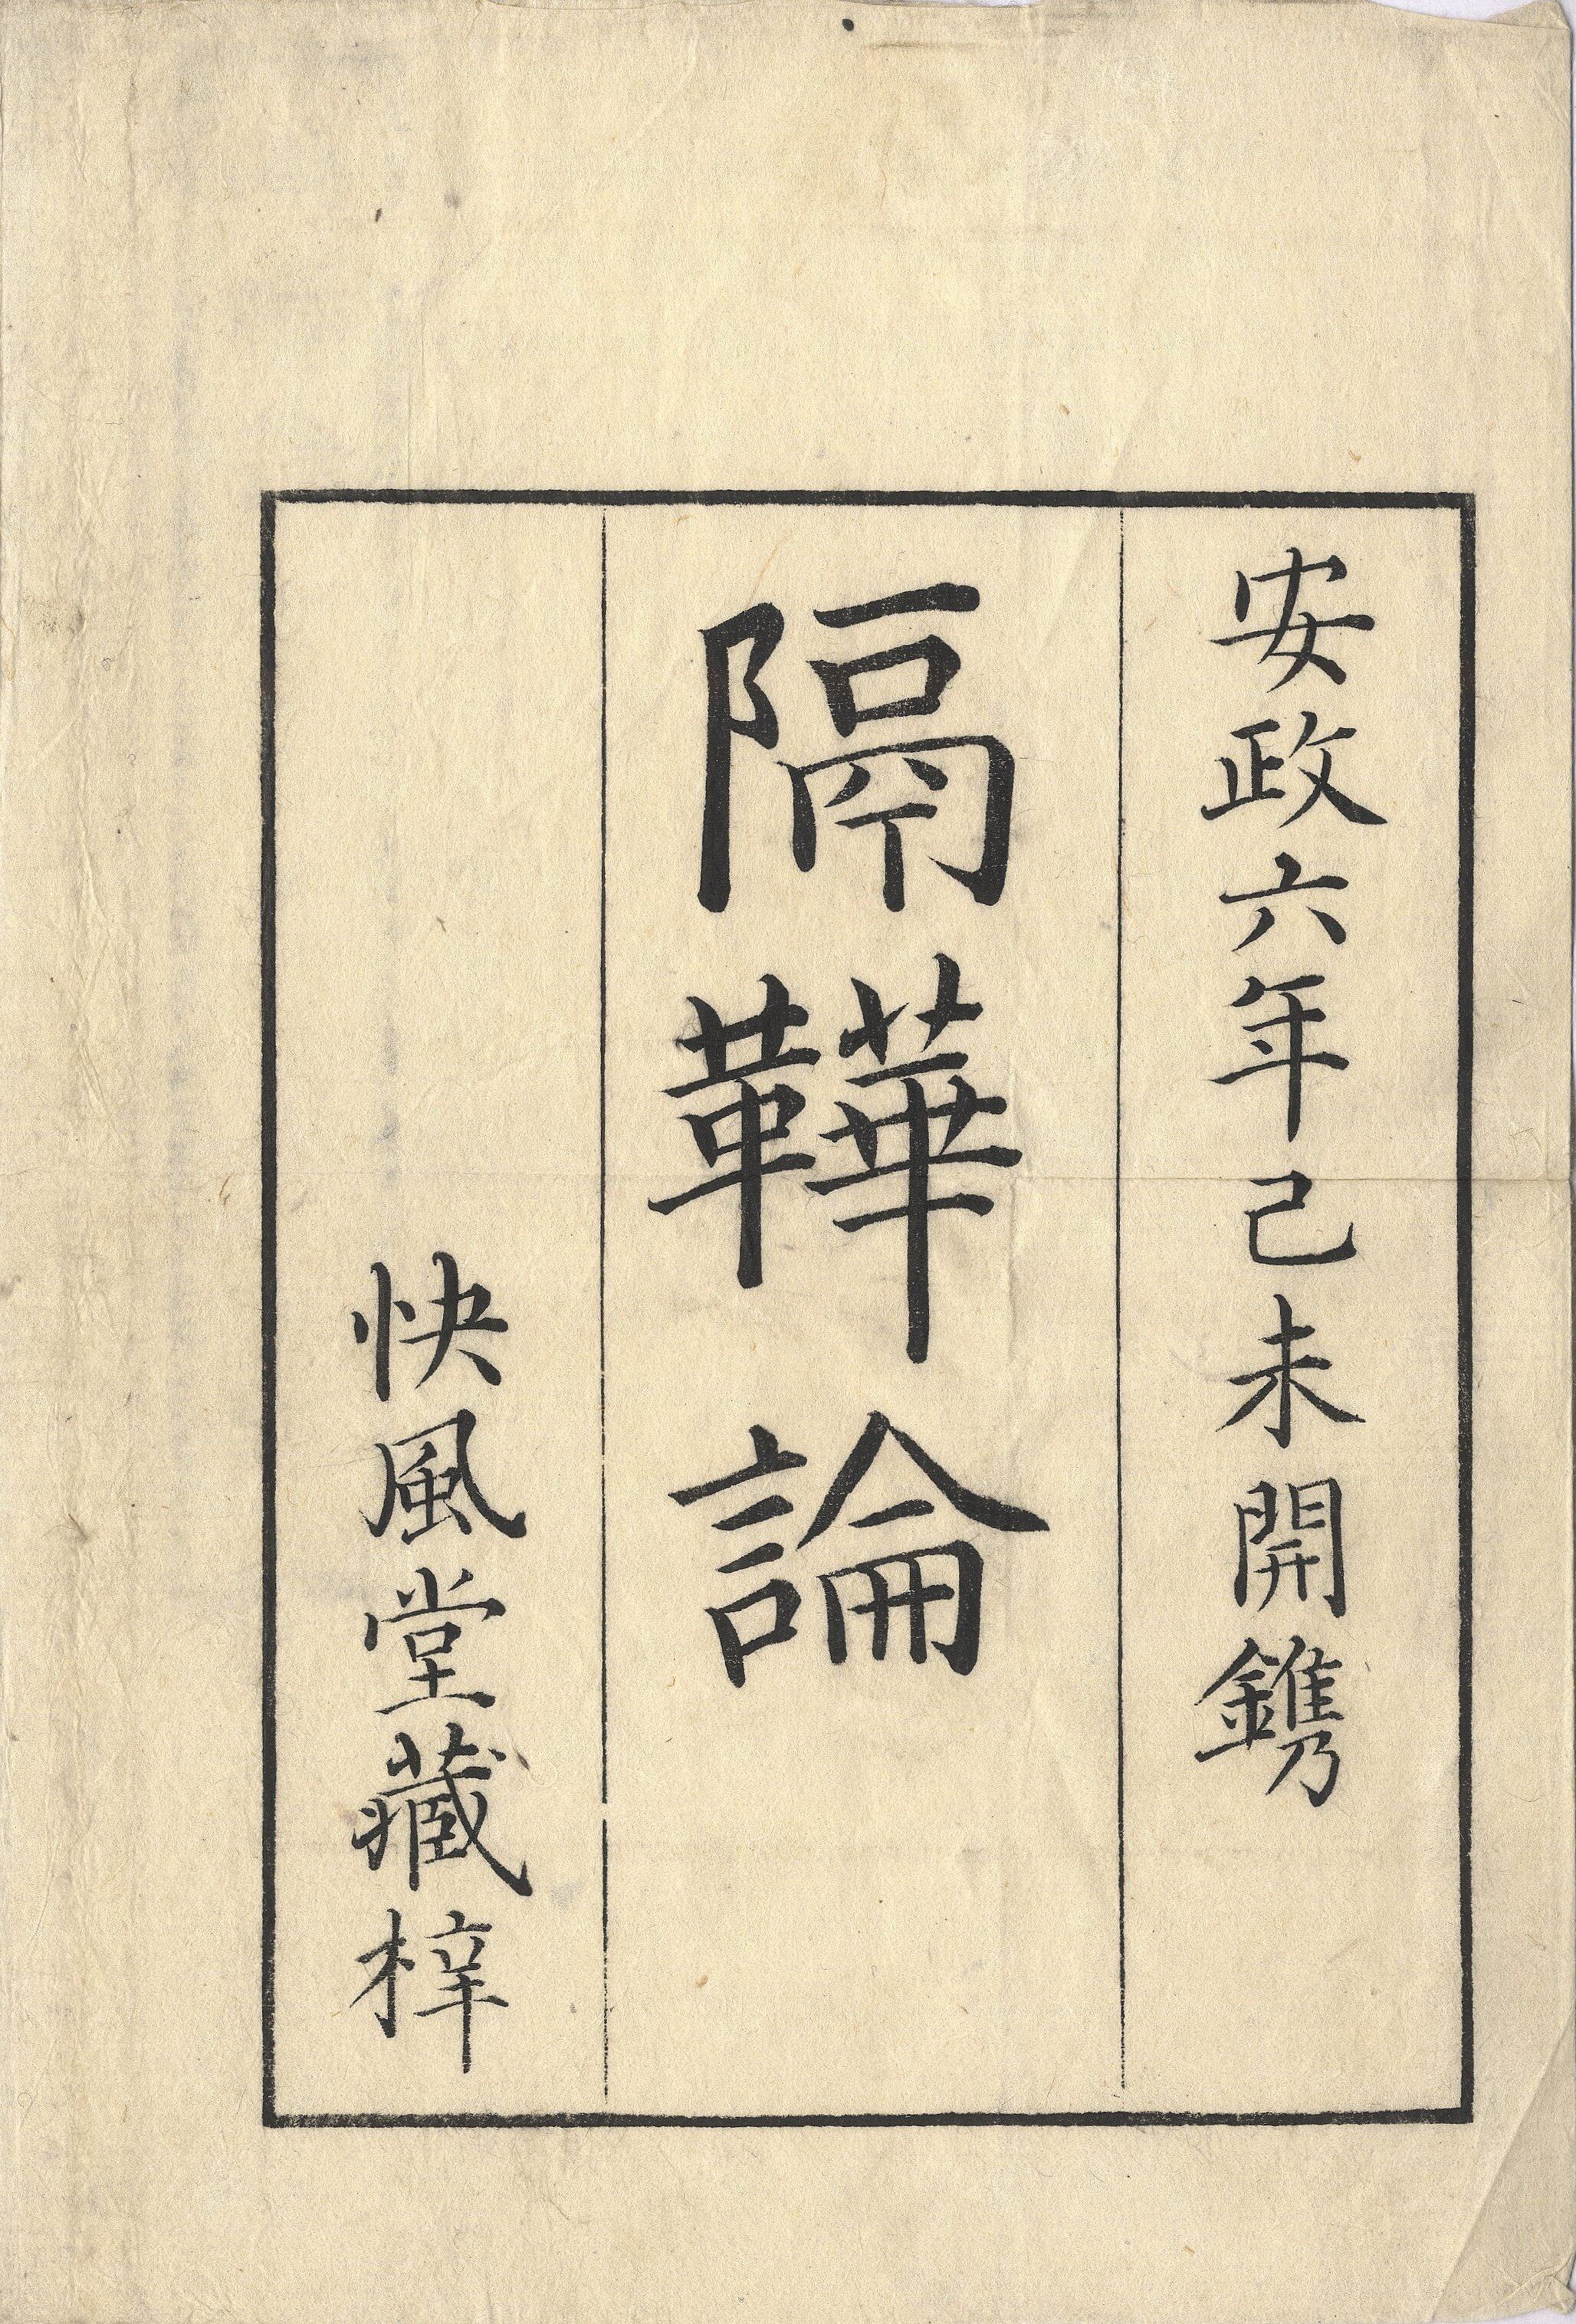 安政六年己未開鐫
隔鞾論
快風堂藏梓